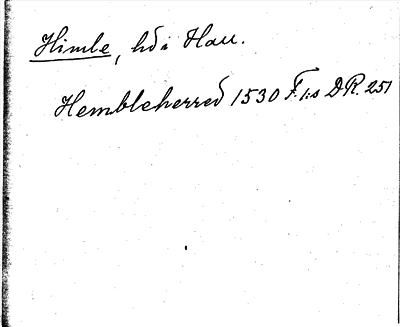 Himle, hd i Hall.
Hembleherred 1530 F.1:s D.R. 251